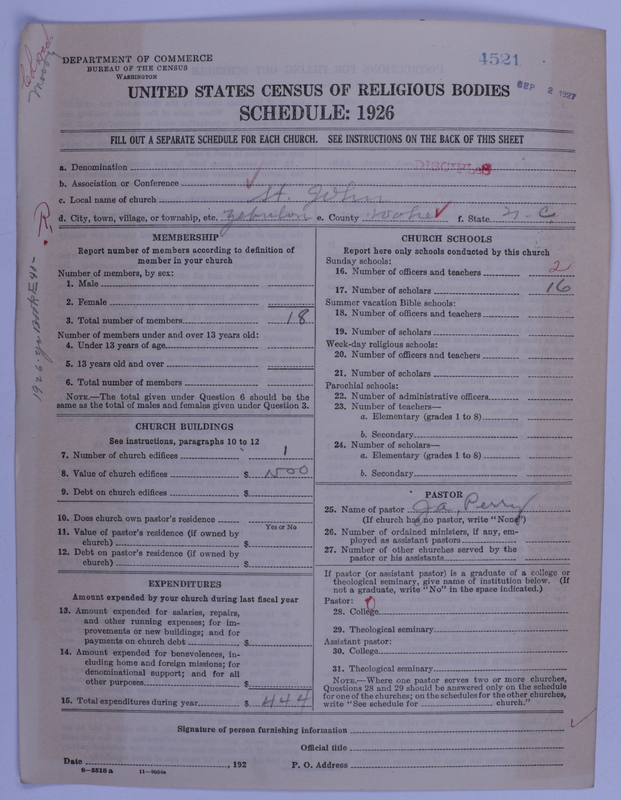 DEPARTMENT OF COMMERCE
BUREAU OF THE CENSUS
WASHINGTON
4521
SEP 2 1927
UNITED STATES CENSUS OF RELIGIOUS BODIES
SCHEDULE: 1926
FILL OUT A SEPARATE SCHEDULE FOR EACH CHURCH. SEE INSTRUCTIONS ON THE BACK OF THIS SHEET
a. Denomination
b. Association or Conference
c. Local name of church St. John
d. City, town, village, or township, etc. Zebulon e. County f. State N. C.
MEMBERSHIP
Report number of members according to definition of
member in your church
Number of members, by sex:
1. Male
2. Female
3. Total number of members 18
Number of members under and over 13 years old:
4. Under 13 years of age
5. 13 years old and over
6. Total number of members
NOTE.—The total given under Question 6 should be the
same as the total of males and females given under Question 3.
CHURCH BUILDINGS
See instructions, paragraphs 10 to 12
7. Number of church edifices 1
8. Value of church edifices $
9. Debt on church edifices $
10. Does church own pastor's residence
Yes or No
11. Value of pastor's residence (if owned by
church) $
12. Debt on pastor's residence (if owned by
church) $
EXPENDITURES
Amount expended by your church during last fiscal year
13. Amount expended for salaries, repairs,
and other running expenses; for im-
provements or new buildings; and for
payments on church debt $
14. Amount expended for benevolences, in-
cluding home and foreign missions; for
denominational support; and for all
other purposes $
15. Total expenditures during year $ 444
CHURCH SCHOOLS
Report here only schools conducted by this church
Sunday schools:
16. Number of officers and teachers 2
17. Number of scholars 16
Summer vacation Bible schools:
18. Number of officers and teachers
19. Number of scholars
Week-day religious schools:
20. Number of officers and teachers
21. Number of scholars
Parochial schools:
22. Number of administrative officers
23. Number of teachers—
a. Elementary (grades 1 to 8)
b. Secondary
24. Number of scholars—
a. Elementary (grades 1 to 8)
b. Secondary
PASTOR
25. Name of pastor J.A. Perry
(If church has no pastor, write "None")
26. Number of ordained ministers, if any, em-
ployed as assistant pastors
27. Number of other churches served by the
pastor or his assistants
If pastor (or assistant pastor) is a graduate of a college or
theological seminary, give name of institution below. (If
not a graduate, write "No" in the space indicated.)
Pastor:
28. College
29. Theological seminary
Assistant pastor:
30. College
31. Theological seminary
NOTE.—Where one pastor serves two or more churches,
Questions 28 and 29 should be answered only on the schedule
for one of the churches; on the schedules for the other churches,
write "See schedule for church."
Signature of person furnishing information
Official title
Date , 192 P. O. Address
8—5518 a 11—9054a